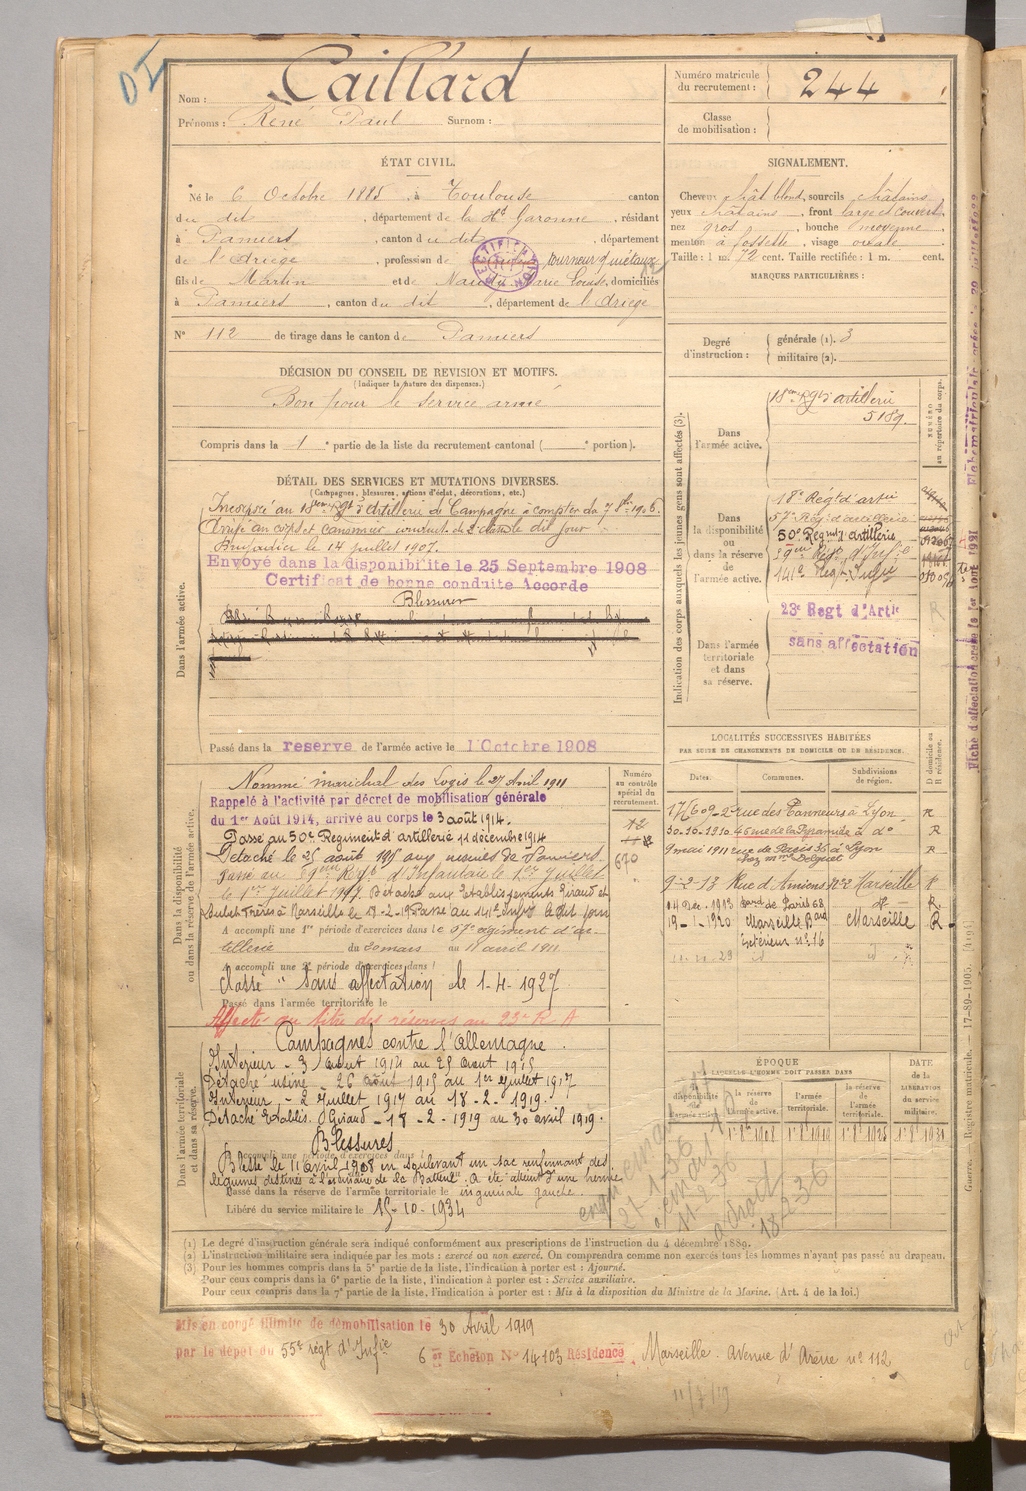 Nom : Caillard
Prénoms : René Paul Surnom :
Numéro matricule du recrutement : 244
Classe de mobilisation :
ÉTAT CIVIL.
Né le 6 Octobre 1885, à Toulouse canton
du dit, département de la Hte Garonne, résidant
à Pamiers, canton du dit, département
de l'Ariège, profession de tourneur s/ métaux
fils de Martin et de Marie Louise, domiciliés
à Pamiers, canton du dit, département de l'Ariège
N° 112 de tirage dans le canton de Pamiers
SIGNALEMENT.
Cheveux chât blond, sourcils châtains
yeux châtains, front large et couvert,
nez gros, bouche moyenne,
menton à fossette, visage ovale
Taille : 1 m. 72 cent. Taille rectifiée : 1 m. cent.
MARQUES PARTICULIÈRES :
Degré d'instruction : générale (1). 3
militaire (2).
DÉCISION DU CONSEIL DE REVISION ET MOTIFS.
(Indiquer la nature des dispenses.)
Bon pour le service armé
Compris dans la 1e partie de la liste du recrutement cantonal ( e portion).
DÉTAIL DES SERVICES ET MUTATIONS DIVERSES.
(Campagnes, blessures, actions d'éclat, décorations, etc.)
Dans l'armée active.
Incorporé au 18ème Rgt d'artillerie de Campagne à compter du 7 8bre 1906.
Arrivé au corps et canonnier conducteur de 2e classe le dit jour
Brigadier le 14 juillet 1907.
Envoyé dans la disponibilité le 25 Septembre 1908
Certificat de bonne conduite Accordé
Blessures
Passé dans la reserve de l'armée active le 1 Octobre 1908
Indication des corps auxquels les jeunes gens sont affectés (3).
NUMÉRO au répertoire du corps.
Dans l'armée active.
18eme Rgt d'artillerie
5189.
Dans la disponibilité ou dans la réserve de l'armée active.
18e Régt d'artie
57e Rég. d'artillerie
50e Regmt d'artillerie
141e Régt Infie
Dans l'armée territoriale et dans sa réserve.
23e Regt d'Artie
sans affectation
LOCALITÉS SUCCESSIVES HABITÉES
PAR SUITE DE CHANGEMENTS DE DOMICILE OU DE RÉSIDENCE.
Dates. Communes. Subdivisions de région. D domicile ou R résidence.
17/6 09 2 rue des Tanneurs à Lyon R
30-10-1910 46 rue de la Pyramide à do R
9 mai 1911 rue de Paris 36 à Lyon R
9-2-13 Rue d'Amiens n° 2 Marseille R
Bard de Paris 68 R
19-1-1920 Marseille Bard Marseille R
Extérieur n° 16
Dans la disponibilité ou dans la réserve de l'armée active.
Numéro au contrôle spécial du recrutement.
Nommé maréchal des Logis le 27 Avril 1911
Rappelé à l'activité par décret de mobilisation générale
du 1er Août 1914, arrivé au corps le 3 août 1914.
Passé au 50e Regiment d'artillerie 11 décembre 1914
Détaché le 25 août 1915 aux usines de Pamiers
le 1er Juillet 1917. Détaché aux Etablissements Giraud et
Frères à Marseille le 18-2-19 Passé au 141e Infie le dit jour
A accompli une 1re période d'exercices dans le 57e régiment d'ar-
tillerie du 30 mars au 11 avril 1911
A accompli une 2e période d'exercices dans
Classé "sans affectation" le 1-4-1927
Passé dans l'armée territoriale le
Affecté au titre des réserves au 23e R A
Dans l'armée territoriale et dans sa réserve.
Campagnes contre l'Allemagne.
Intérieur - 3 Août 1914 au 25 Aout 1915
Détaché usine - 26 août 1915 au 1er Juillet 1917
Intérieur. - 2 Juillet 1917 au 18-2-1919.
Détaché Etablis. Giraud - 18-2-1919 au 30 avril 1919.
Blessures
A accompli une période d'exercices dans
Blessé le 11 avril 1908 en soulevant un sac renfermant des
légumes destinés à l'ordinaire de la Batterie. A été atteint d'une hernie
Passé dans la réserve de l'armée territoriale le inguinale gauche.
Libéré du service militaire le 15-10-1934
ÉPOQUE
À LAQUELLE L'HOMME DOIT PASSER DANS
la disponibilité de l'armée active. la réserve de l'armée active. l'armée territoriale. la réserve de l'armée territoriale.
DATE de la LIBÉRATION du service militaire.
21-1-36
11-2-36
18-2-36
(1) Le degré d'instruction générale sera indiqué conformément aux prescriptions de l'instruction du 4 décembre 1889.
(2) L'instruction militaire sera indiquée par les mots : exercé ou non exercé. On comprendra comme non exercés tous les hommes n'ayant pas passé au drapeau.
(3) Pour les hommes compris dans la 5e partie de la liste, l'indication à porter est : Ajourné.
Pour ceux compris dans la 6e partie de la liste, l'indication à porter est : Service auxiliaire.
Pour ceux compris dans la 7e partie de la liste, l'indication à porter est : Mis à la disposition du Ministre de la Marine. (Art. 4 de la loi.)
Mis en congé illimité de démobilisation le 30 Avril 1919
par le dépôt du 55e régt d'Infie 6e Echelon N° 14103 Résidence Marseille. Avenue d'Arène n° 112
Guerre. — Registre matricule. — 17-89-1905.